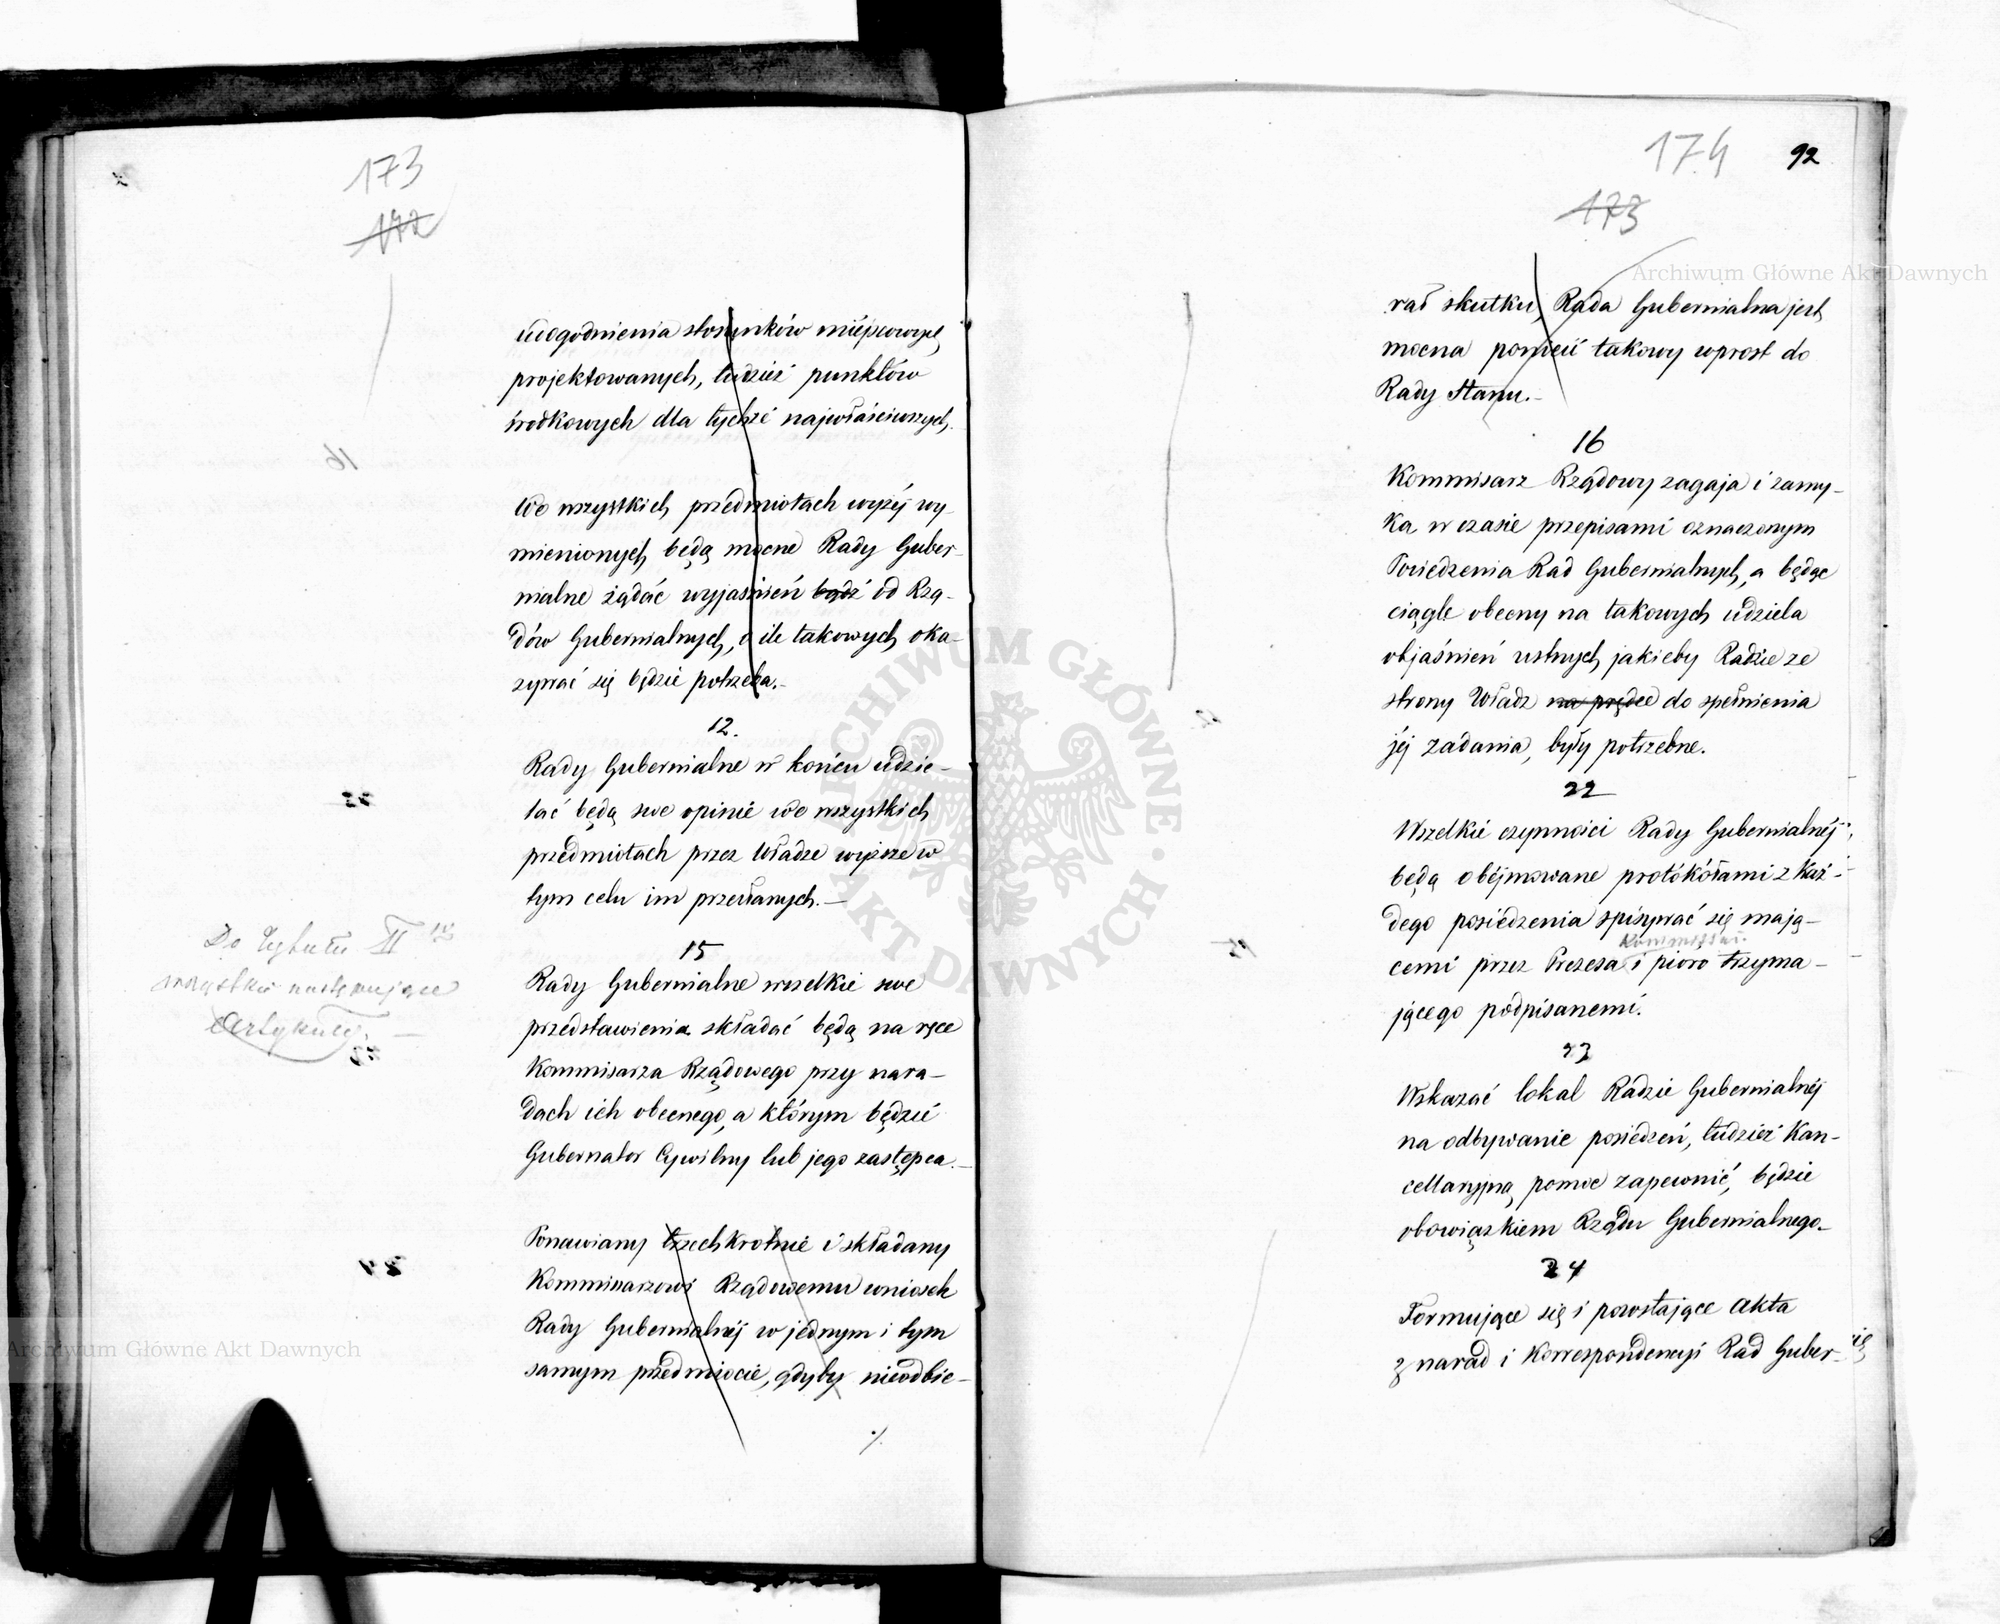 173
172
uwogodnienia stosunków miejscowych
projektowanych, tudzież punktów
środkowych dla tychże najwłaściwszych.
We wszystkich przedmiotach wyżéj wy-
mienionych będą mocne Rady Guber-
nialne żądać wyjaśnień bądź od Rzą-
dów Gubernialnych, o ile takowych oka-
zywać się będzie potrzeba.-
12.
Rady Gubernialne w końcu udzie-
lać będą swe opinie we wszystkich
przedmiotach przez Władze wyższe w
tym celu im przesłanych.—
Do Tytułu II go
wszystkie następujące
Artykuły.—
15
Rady Gubernialne wszelkie swe
przedstawienia składać będą na ręce
Kommisarza Rządowego przy nara-
dach ich obecnego, a którym będzie
Gubernator Cywilny lub jego zastępca.-
Ponawiany trzechkrotnie i składany
Kommisarzowi Rządowemu wniosek
Rady Gubernialnéj w jednym i tym
samym przedmiocie, gdyby nieodbie-
./.
174 92
173
rał skutku, Rada Gubernialna jest
mocna ponieść takowy wprost do
Rady Stanu.-
16
Kommisarz Rządowy zagaja i zamy-
ka w czasie przepisami oznaczonym
Posiedzenia Rad Gubernialnych, a będąc
ciągle obecny na takowych udziela
objaśnień ustnych jakieby Radzie ze
strony Władz na prędce do spełnienia
jéj zadania, były potrzebne.
22
Wszelkie czynności Rady Gubernialnéj
będą obéjmowane protókółami z każ-
dego posiedzenia spisywać się mają-
cemi przez Prezesa i pióro trzyma-
jącego podpisanemi.
23
Wskazać lokal Radzie Gubernialnéj
na odbywanie posiedzeń, tudzież Kan-
cellaryjną pomoc zapewnić, będzie
obowiązkiem Rządu Gubernialnego.-
24
Formujące się i powstające Akta
z narad i Korrespondencyi Rad Guber-
Archiwum Główne Akt Dawnych
Archiwum Główne Akt Dawnych
ARCHIWUM GŁÓWNE AKT DAWNYCH